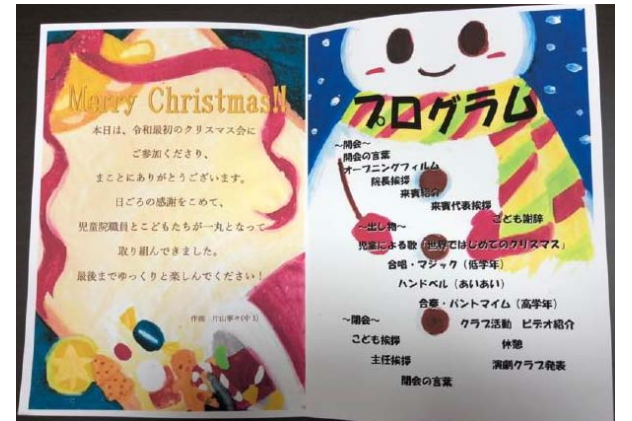 Merry Christmas!!
本日は、令和最初のクリスマス会に
ご参加くださり、
まことにありがとうございます。
日ごろの感謝をこめて、
児童院職員とこどもたちが一丸となって
取り組んできました。
最後までゆっくりと楽しんでください!
作画
プログラム
~開会~
開会の言葉
オープニングフィルム
院長挨拶
来賓紹介
来賓代表挨拶
こども謝辞
~出し物~
児童による歌「世界ではじめてのクリスマス」
合唱・マジック(低学年)
ハンドベル(あいあい)
合奏・パントマイム(高学年)
クラブ活動 ビデオ紹介
休憩
演劇クラブ発表
~閉会~
こども挨拶
主任挨拶
閉会の言葉